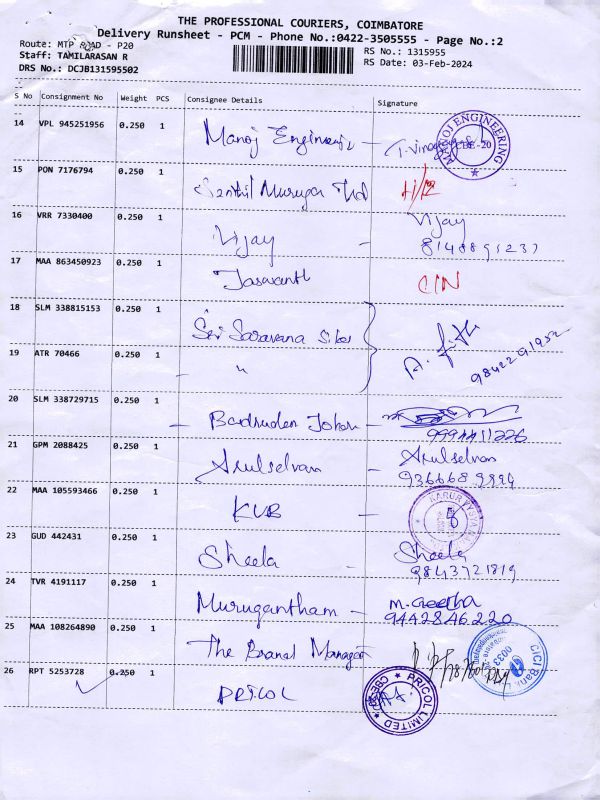 THE PROFESSIONAL COURIERS, COIMBATORE
Delivery Runsheet - PCM - Phone No.:0422-3505555 - Page No.:2
Route: MTP ROAD - P20
RS No.: 1315955
Staff: TAMILARASAN R
RS Date: 03-Feb-2024
DRS No.: DCJB131595502
S No Consignment No Weight PCS Consignee Details Signature
14 VPL 945251956 0.250 1 Manoj Engineering -
MANOJ ENGINEERING
CBE-20
15 PON 7176794 0.250 1 Senthil Murugan
16 VRR 7330400 0.250 1 Vijay - Vijay
17 MAA 863450923 0.250 1 Jaswanth
18 SLM 338815153 0.250 1 Sri Saravana
19 ATR 70466 0.250 1 - "
20 SLM 338729715 0.250 1 -
9994411226
21 GPM 2088425 0.250 1 Arulselvam - Arulselvam
22 MAA 105593466 0.250 1 KVB
KARUR VYSYA
23 GUD 442431 0.250 1 Sheela Sheela
9843721819
24 TVR 4191117 0.250 1 Murugantham - M. Geetha
9442846220
25 MAA 108264890 0.250 1 The Branch Manager
ICICI Bank
0033
26 RPT 5253728 0.250 1 PRICOL
PRICOL LIMITED